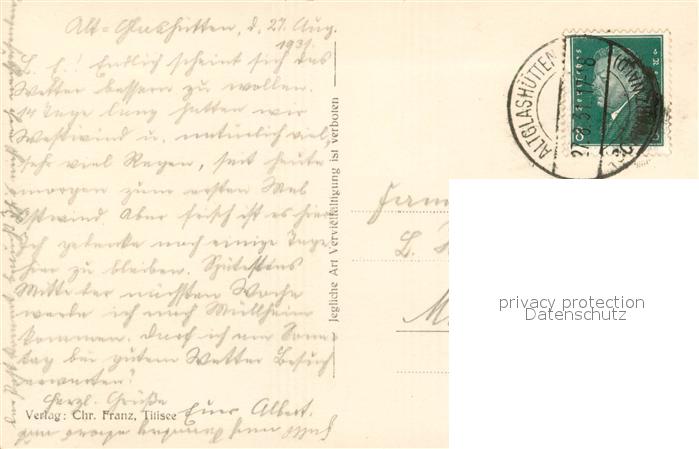 Alt-Glashütten, d. 27. Aug.
1931.
L. E.! Endlich scheint sich das
Wetter bessern zu wollen.
14 Tage lang hatten wir
Westwind u. natürlich viel
sehr viel Regen, seit heute
morgen zum ersten Mal
Ostwind. Aber frisch ist es hier
Ich gedenke noch einige Tage
hier zu bleiben. Spätestens
Mitte der nächsten Woche
werde ich nach Müllheim
kommen. Darf ich am Sonn-
tag bei gutem Wetter Besuch
erwarten?
Herzl. Grüße
Euer Albert.
Verlag: Chr. Franz, Titisee
Jegliche Art Vervielfältigung ist verboten
ALTGLASHÜTTEN
27.8.31
Deutsches Reich
8
Fam
L.
M
privacy protection
Datenschutz